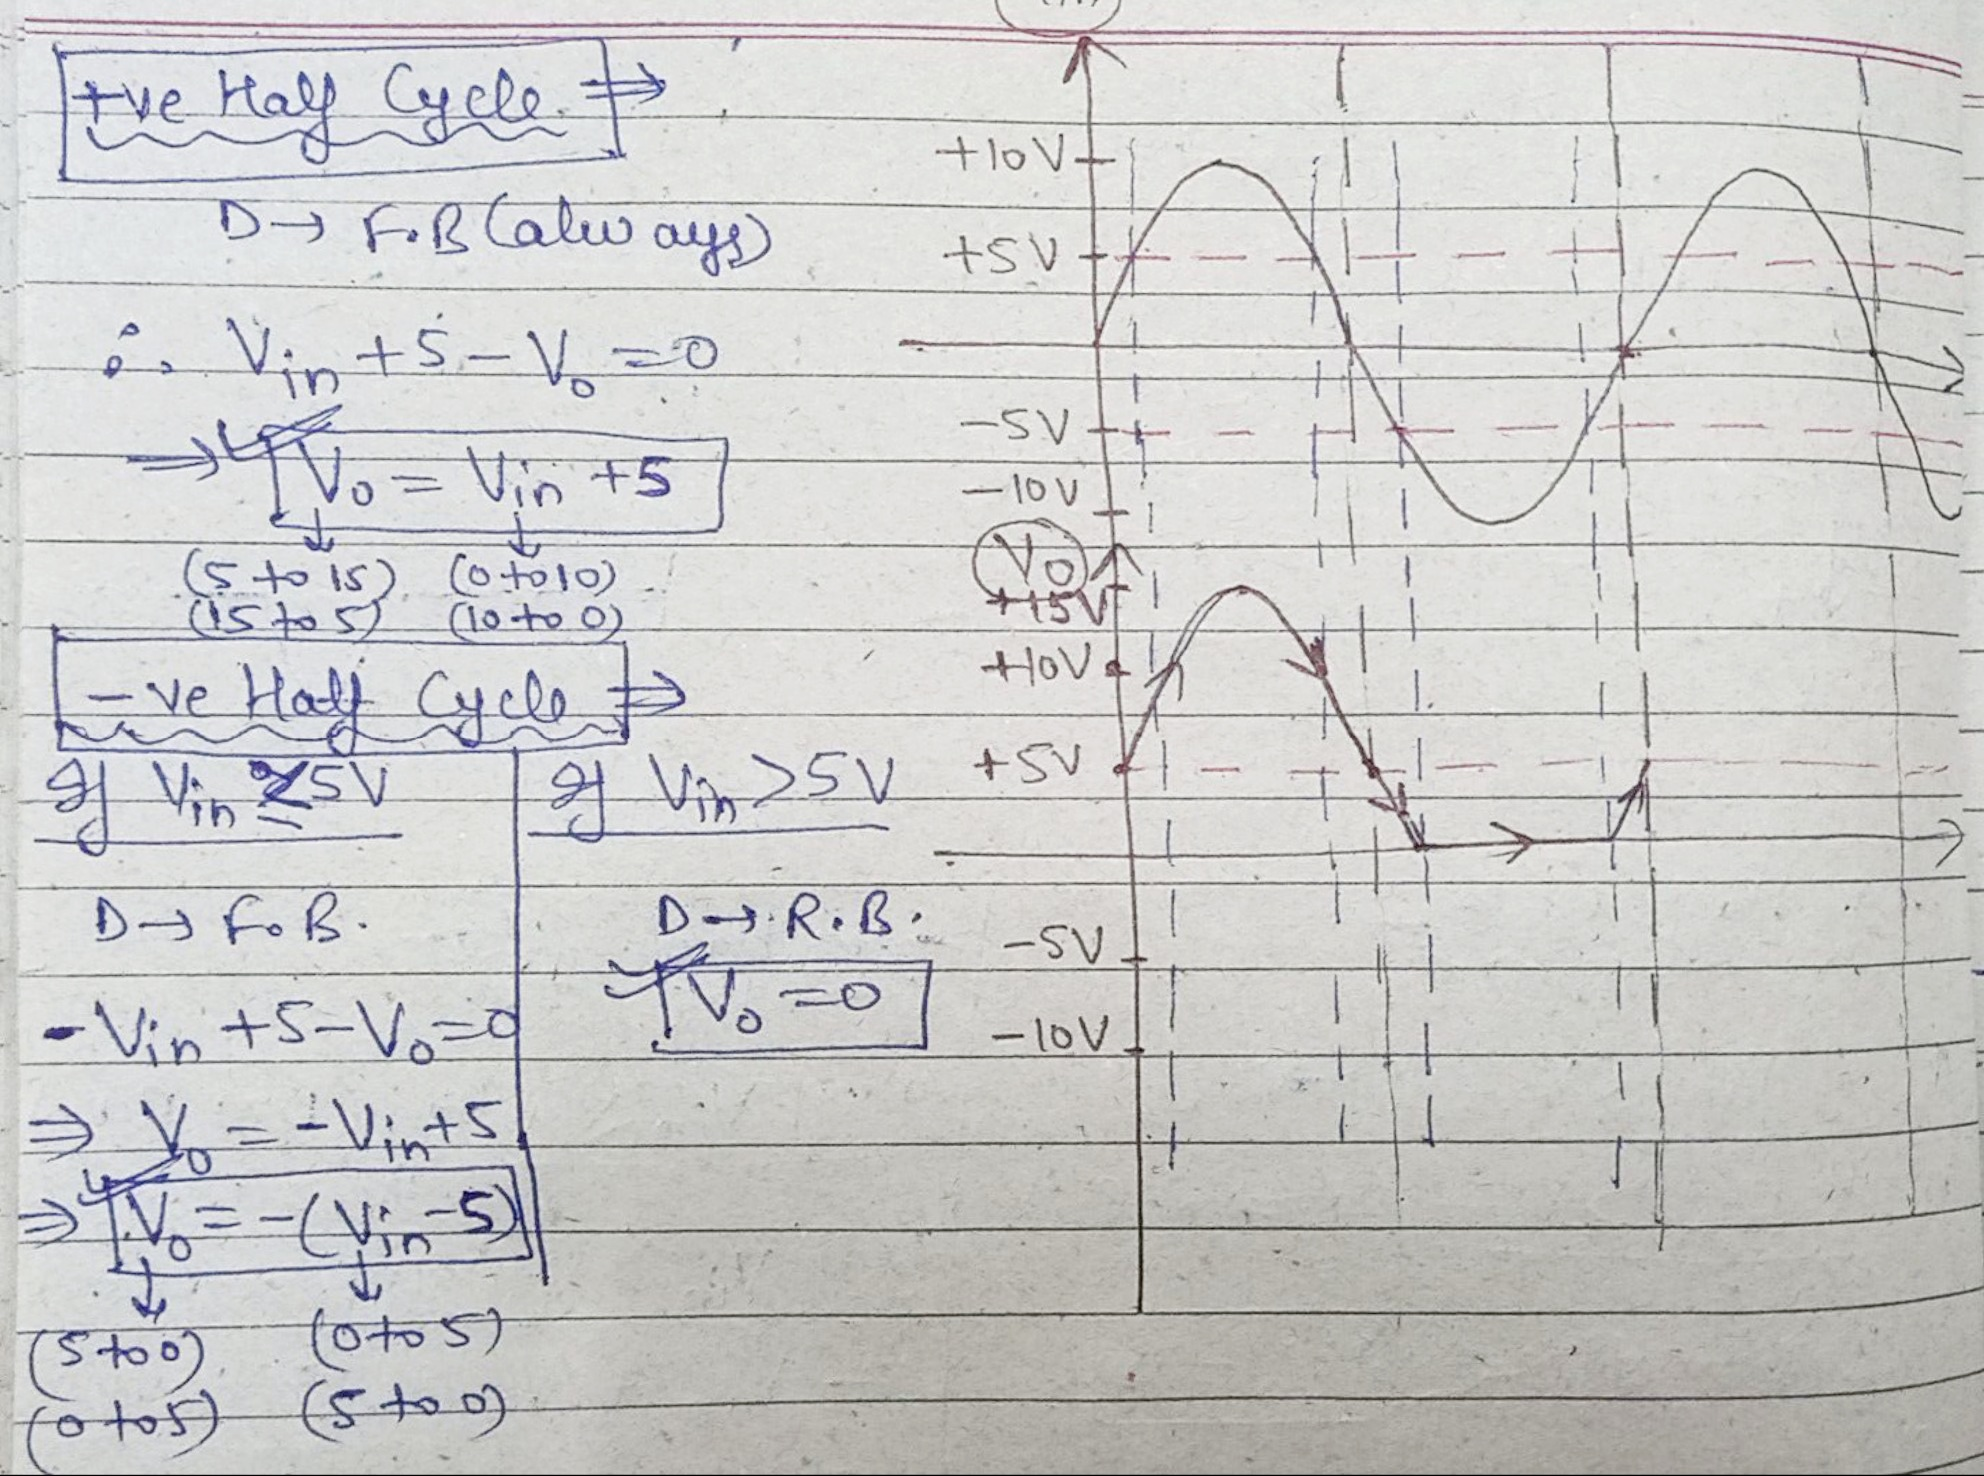 +ve Half Cycle ⇒
D → F.B (always)
∴ Vin + 5 - Vo = 0
⇒ Vo = Vin + 5
(5 to 15) (0 to 10)
(15 to 5) (10 to 0)
-ve Half Cycle ⇒
If Vin 5V
D → F.B.
-Vin + 5 - Vo = 0
⇒ Vo = -Vin + 5
⇒ Vo = -(Vin - 5)
(5 to 0) (0 to 5)
(0 to 5) (5 to 0)
If Vin > 5V
D → R.B.
Vo = 0
+10V
+5V
-5V
-10V
Vo
+15V
+10V
+5V
-5V
-10V